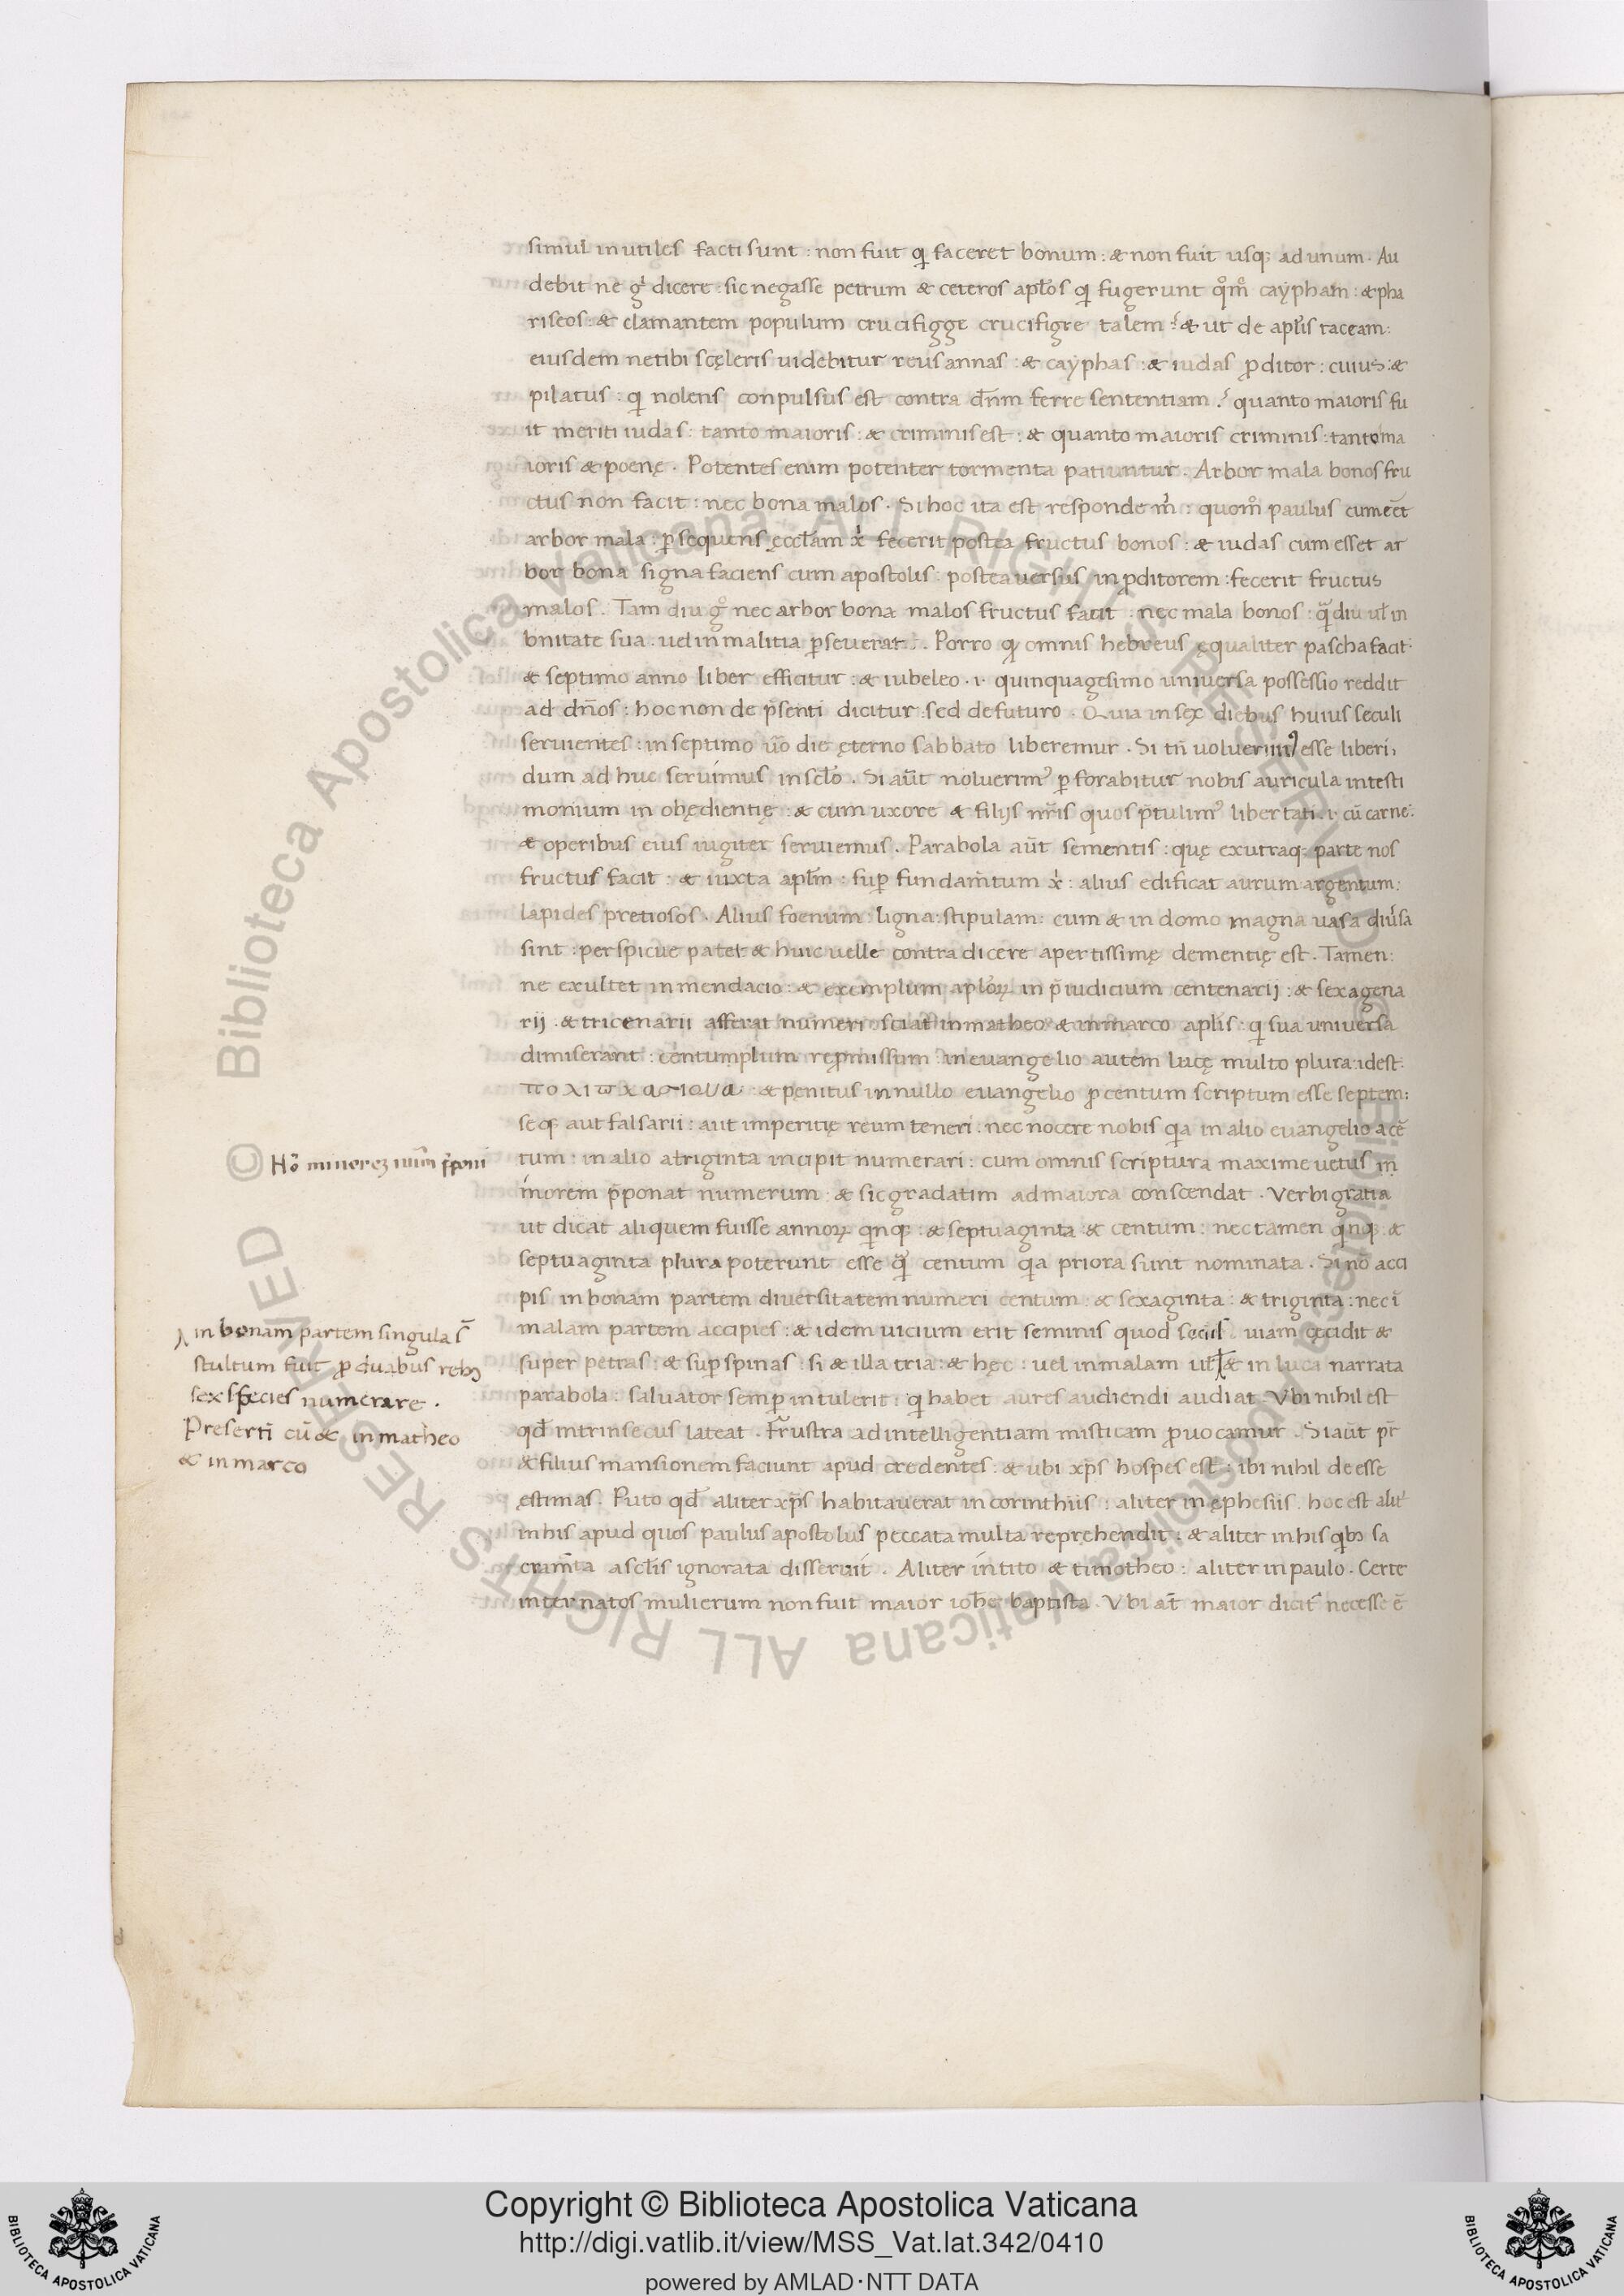 simul inutiles facti sunt : non fuit qi faceret bonum : & non fuit usq; ad unum . Au
debit ne gͥ dicere : sic negasse petrum & ceteros aplos qi fugerunt qͦmͦ caypham : & pha
riseos : & clamantem populum crucifigge crucifigre talem : & ut de aplis taceam :
eiusdem netibi scęleris uidebitur reus annas : & cayphas : & iudas proditor : cuius : &
pilatus : qi nolens conpulsus est contra dñm ferre sententiam . quanto maioris fu
it meriti iudas : tanto maioris : & criminis est : & quanto maioris criminis : tanto ma
ioris & poenę . Potentes enim potenter tormenta patiuntur . Arbor mala bonos fru
ctus non facit : nec bona malos . Si hoc ita est responde mͥ : quomͦ paulus cum eēt
arbor mala : ꝑsequens ęccłam xͥ fecerit postea fructus bonos : & iudas cum esset ar
bor bona signa faciens cum apostolis : postea versus in ꝓditorem : fecerit fructus
malos . Tam diu gͦ nec arbor bona malos fructus facit : nec mala bonos : qͣ̃diu ul in
bnitate sua . uel in malitia ꝑseuerat . Porro qꝫ omnis hebreus ęqualiter pascha facit
& septimo anno liber efficitur : & iubeleo . i . quinquagesimo universa possessio reddit
ad dños : hoc non de p̄senti dicitur : sed de futuro . Quia in sex diebus huius seculi
seruientes : in septimo ūo die ęterno sabbato liberemur . Si tn̄ uoluerimꝰ esse liberi ,
dum ad huc seruimus in scło . Si aūt noluerimꝰ ꝑforabitur nobis auricula in testi
monium in obędientię : & cum uxore & filijs nr̄is quos p̄tulimꝰ libertati . i . cū carne :
& operibus eius iugiter seruiemus . Parabola aūt sementis : quę ex utraq; parte nos
fructus facit : & iuxta aplm : suꝑ fundam̄tum xͥ : alius edificat aurum argentum :
lapides pretiosos . Alius foenum : ligna : stipulam : cum & in domo magna vasa diūsa
sint : perspicue patet & huic uelle contradicere apertissimę dementię est . Tamen :
ne exultet in mendacio : & exemplum aploꝝ in p̄iudicium centenarij : & sexagena
rij . & tricenarii afferat numeri sciat in matheo & in marco aplis : qi sua universa
dimiserant : centumplum reꝓmissum in euangelio autem lucę multo plura : idest :
πολιπλασιονα : & penitus in nullo evangelio ꝓ centum scriptum esse septem :
seq; aut falsarii : aut imperitię reum teneri . nec nocere nobis qia in alio evangelio a cē
tum : in alio a triginta incipit numerari : cum omnis scriptura maxime vetus in
morem p̄ponat numerum : & sic gradatim ad maiora conscendat . Verbi gratia
ut dicat aliquem fuisse annoꝝ qinq; : & septuaginta & centum : nec tamen qinq; &
septuaginta plura poterunt esse qͣ̃ centum qia priora sunt nominata . Si nō acci
pis in bonam partem diversitatem numeri centum : & sexaginta : & triginta : nec ī
malam partem accipies : & idem uicium erit seminis quod secus uiam cęcidit &
super petras : & suꝑ spinas : si & illa tria : & hęc : uel in malam ul & in luca narrata
parabola : saluator semꝑ intulerit : qi habet aures audiendi audiat . Vbi nihil est
qd̄ intrinsecus lateat . Frustra ad intelligentiam misticam ꝓuocamur . Si aūt pr̄
& filius mansionem faciunt apud credentes : & ubi xp̄s hospes est : ibi nihil de esse
ęstimas . Puto qd̄ aliter xp̄s habitauerat in corinthiis : aliter in ęphesiis . hoc est alit̄
in his apud quos paulus apostolus peccata multa reprehendit : & aliter in his qibꝫ sa
cram̄ta a sclis ignorata disseruit . Aliter in tito & timotheo : aliter in paulo . Certe
inter natos mulierum non fuit maior iohe baptista . Vbi at̄ maior dicit̄ necesse ē
in bonam partem singula s̄
stultum fuit ꝓ duabus rebꝫ
sex species numerare .
Presertī cū & in matheo
& in marco
Copyright © Biblioteca Apostolica Vaticana
http://digi.vatlib.it/view/MSS_Vat.lat.342/0410
powered by AMLAD·NTT DATA
BIBLIOTECA APOSTOLICA VATICANA
BIBLIOTECA APOSTOLICA VATICANA
© Biblioteca Apostolica Vaticana ALL RIGHTS RESERVED
© Biblioteca Apostolica Vaticana ALL RIGHTS RESERVED